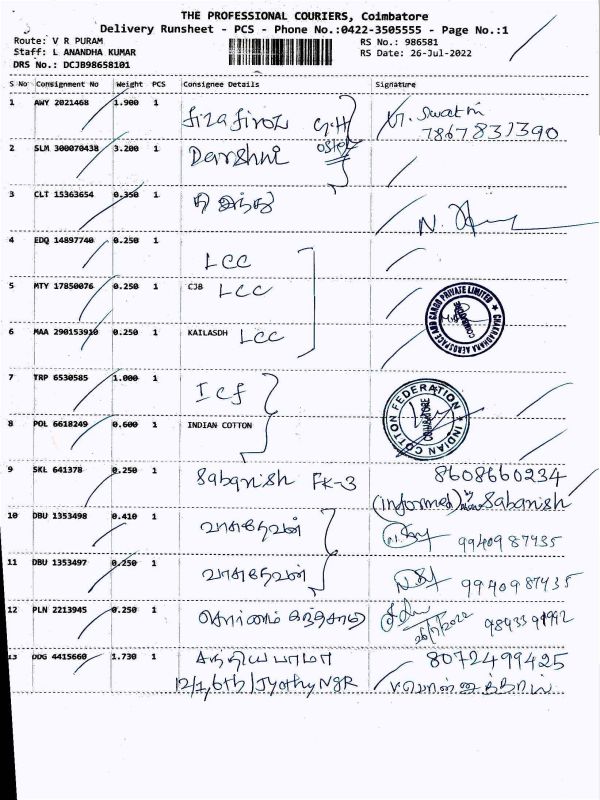 THE PROFESSIONAL COURIERS, Coimbatore
Delivery Runsheet - PCS - Phone No.:0422-3505555 - Page No.:1
Route: V R PURAM
RS No.: 986581
Staff: L ANANDHA KUMAR
RS Date: 26-Jul-2022
DRS No.: DCJB98658101
S No Consignment No Weight PCS Consignee Details Signature
1 AWY 2021468 1.900 1 fizafiroz G.H swathi
ostel 7867831390
2 SLM 300070438 3.200 1 Darshni
3 CLT 15363654 0.350 1
4 EDQ 14897740 0.250 1 LCC
5 MTY 17850076 0.250 1 CJB LCC
6 MAA 290153910 0.250 1 KAILASDH LCC
CHAKRADHARA AEROSPACE AND CARGO PRIVATE LIMITED
COIMBATORE
7 TRP 6530585 1.000 1 ICF
8 POL 6618249 0.600 1 INDIAN COTTON
INDIAN COTTON FEDERATION
COIMBATORE
9 SKL 641378 0.250 1 Sabanish FK-3 8608660234
(informed) Sabanish
10 DBU 1353498 0.410 1 வாசுதேவன் 9940987435
11 DBU 1353497 0.250 1 வாசுதேவன் 9940987435
12 PLN 2213945 0.250 1 26/7/2022
13 DDG 4415660 1.730 1 சத்தியபாமா 8072499425
12/1,6th/Jyothy NGR